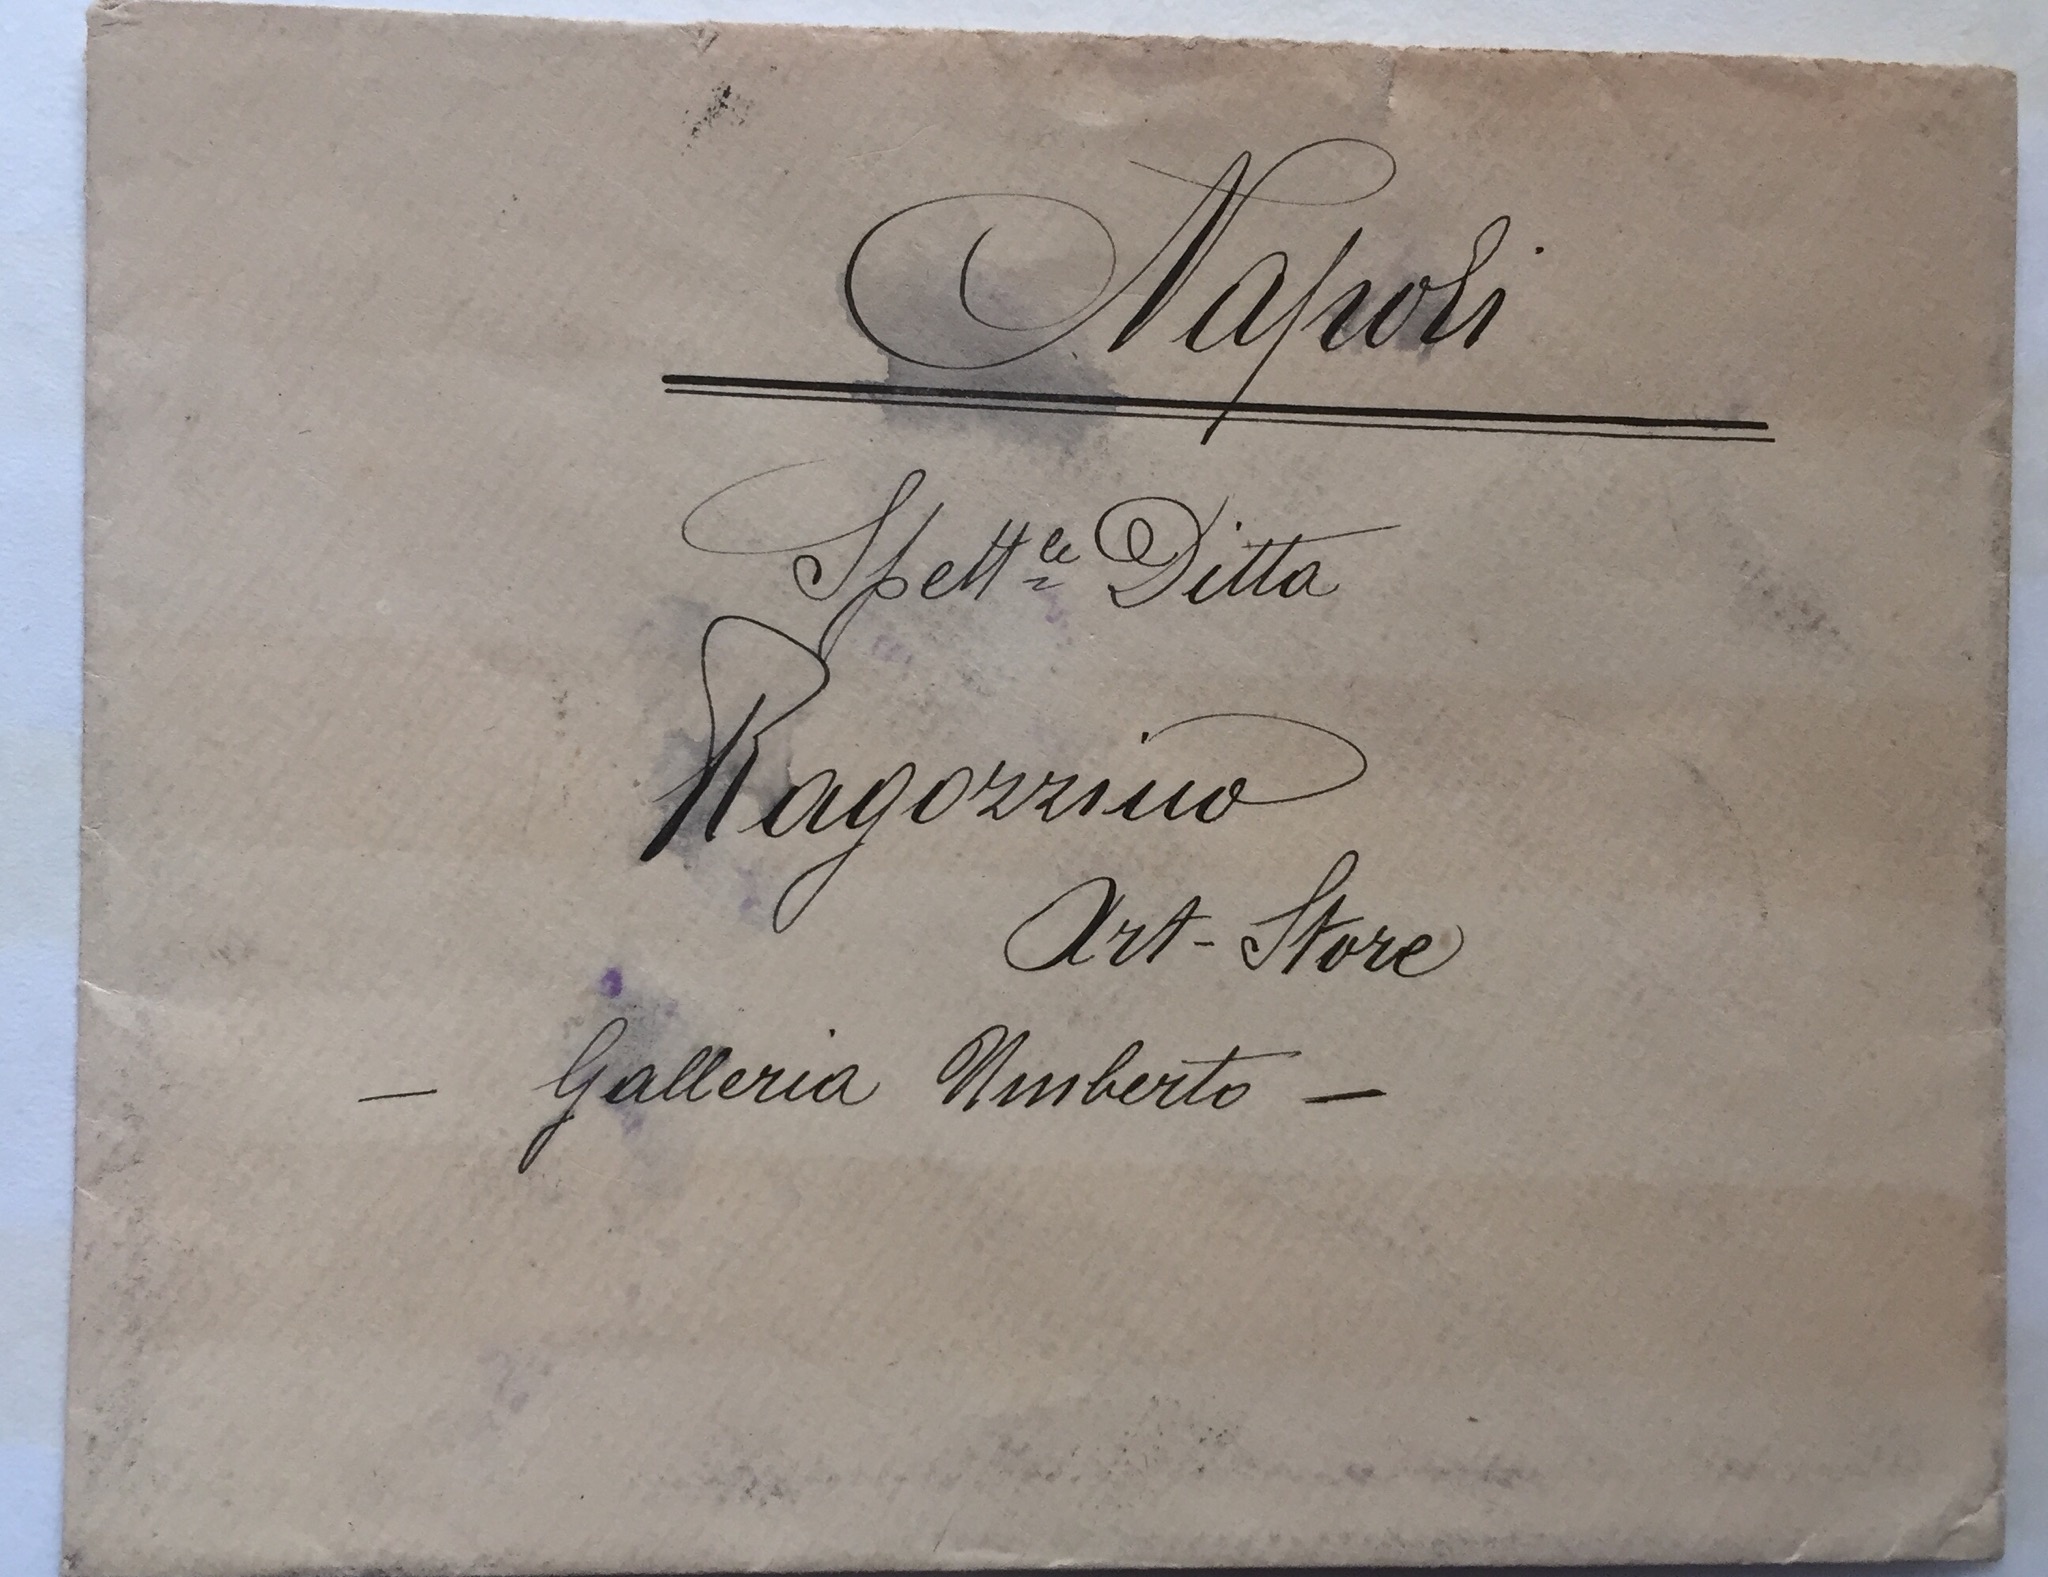 Napoli
Spett.le Ditta
Ragozzino
Art-Store
- Galleria Umberto -